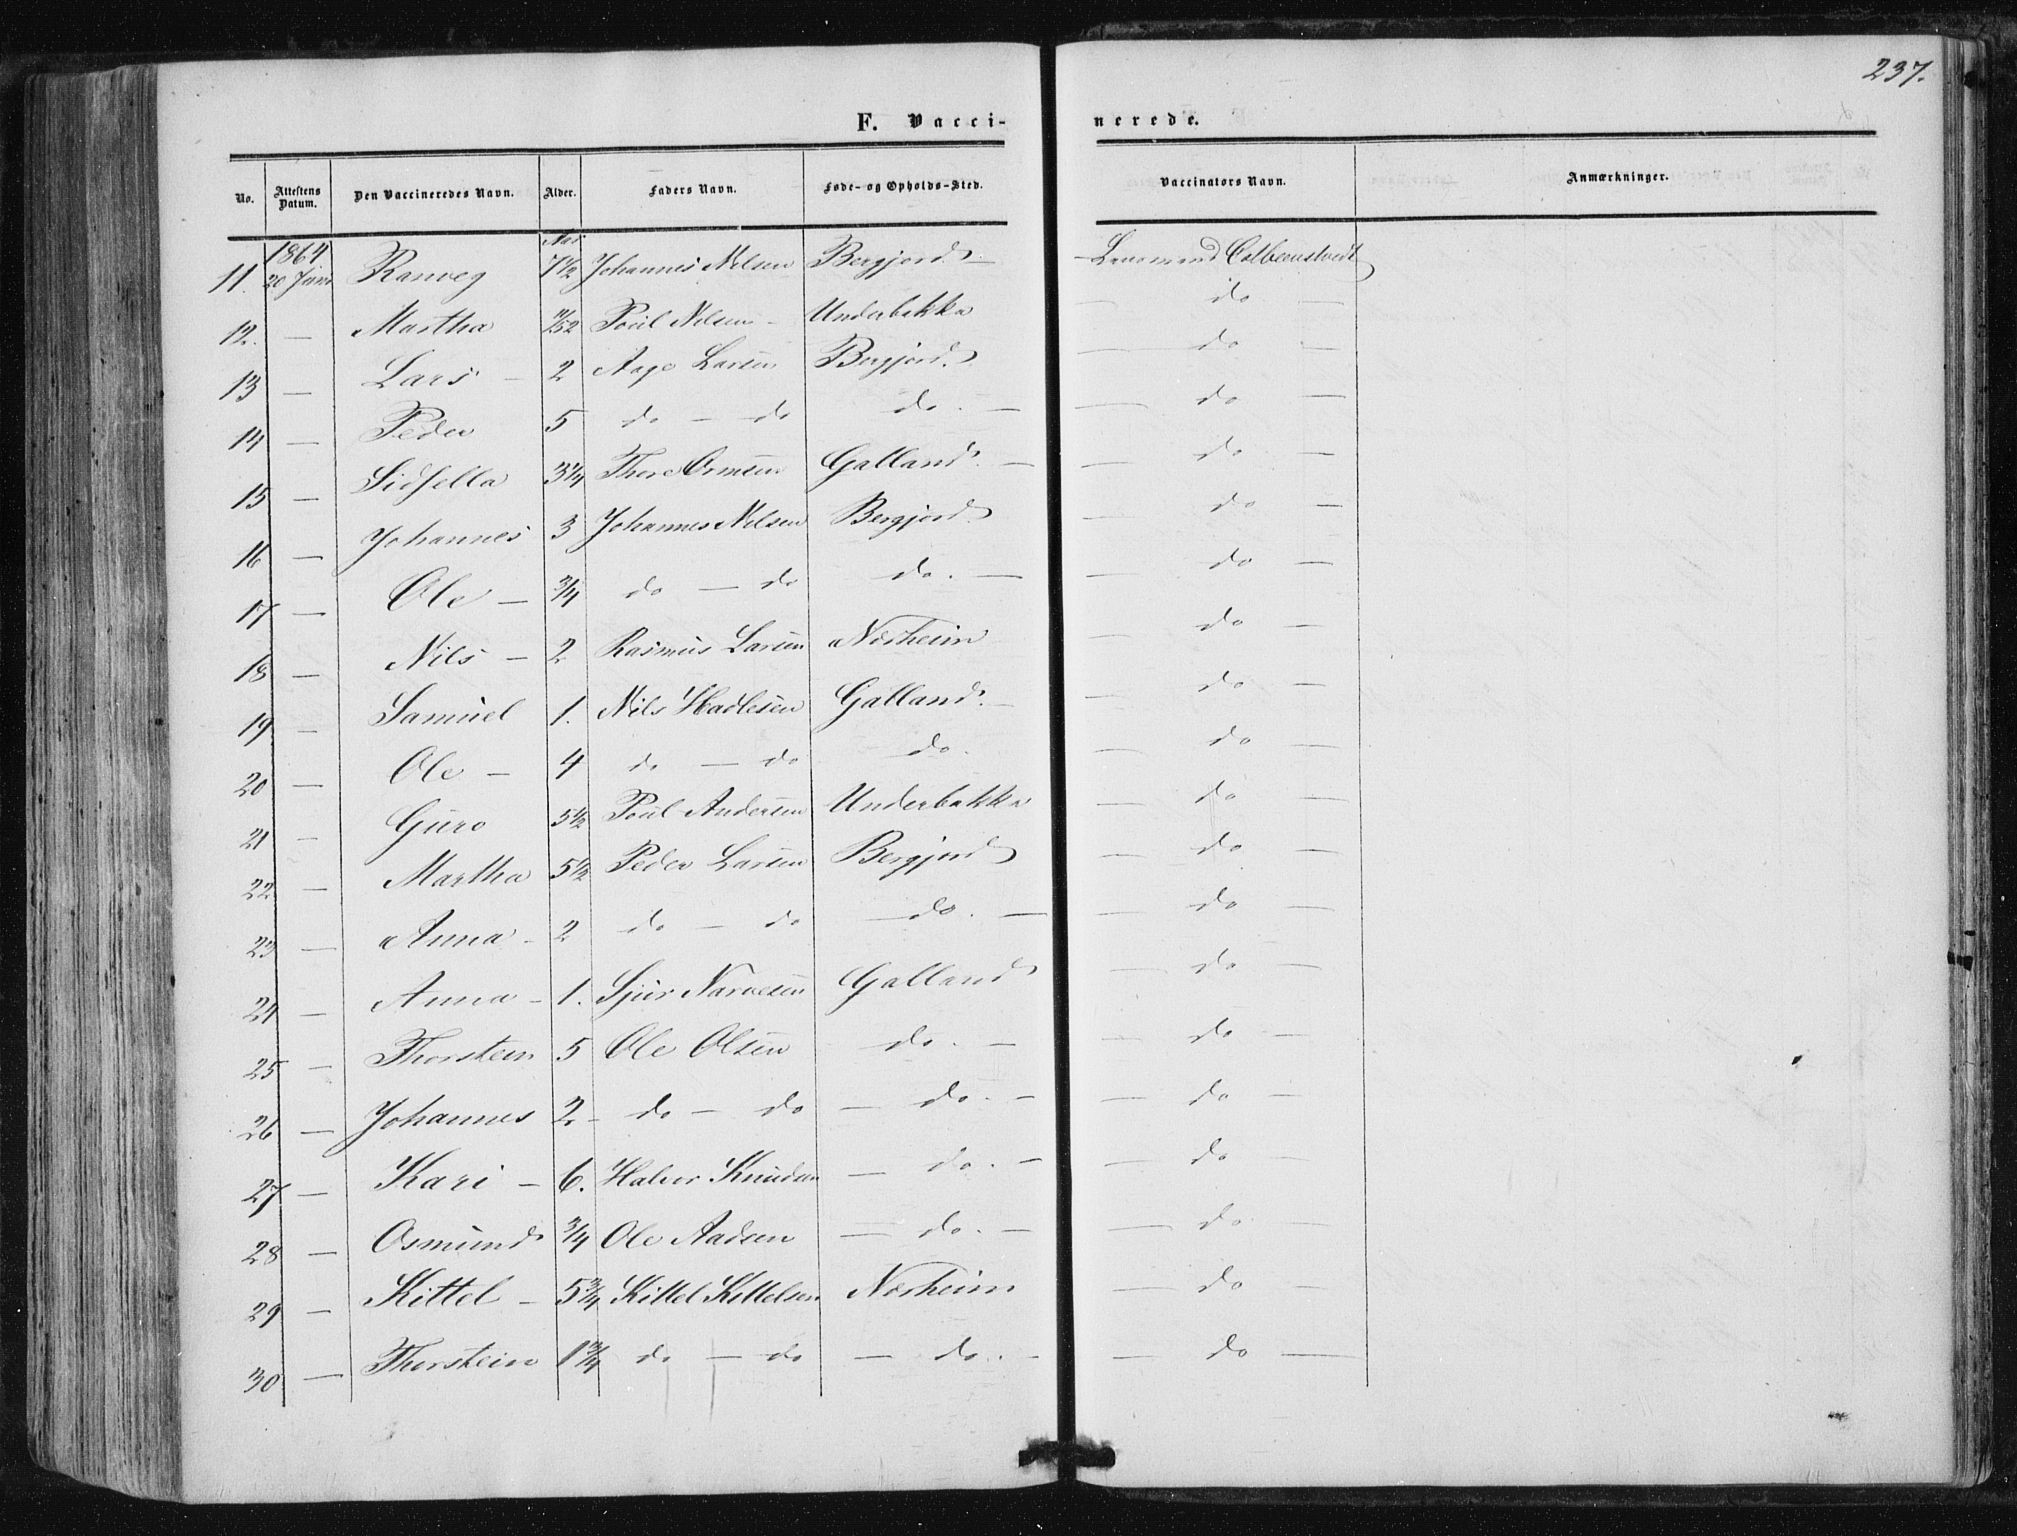 237.
F. Vaccinerede.
No. Attestens Datum. Den Vaccineredes Navn. Alder. Faders Navn. Føde- og Opholds-Sted. Vaccinators Navn. Anmærkninger.
1864 Aar
11. 20 Juni Ranveg 7 1/2 Johannes Nilsen Bergjord
12. — Martha /52 Poul Nilsen Underbakka — do —
13 — Lars — 2 Aage Larsen Bergjord. — do —
14 — Peder 5 do — do do. — — do —
15 — Sidsella 3 1/4 Thore Ormsen Galland. — — do —
16 — Johannes 3 Johannes Nilsen Bergjord — do —
17 — Ole — 3/4 do — do do. — — do —
18 — Nils — 2 Rasmus Larsen Norheim — do —
19 — Samuel 1. Nils Hadlesen Galland. — — do —
20 — Ole — 4 do — do do. — do —
21 — Guro 5 1/2 Poul Andersen Underbakka — do —
22 — Martha 5 1/2 Peder Larsen Bergjord — do —
23 — Anna — 2 do — do — do. — — do —
24 — Anna — 1. Sjur Narvesen Galland — do —
25 — Thorstein 5 Ole Olsen do. — — do —
26 — Johannes 2 — do — do — do. — — do —
27 — Kari — 6. Halvor Knudsen — do. — — do —
28 — Osmund 3/4 Ole Aadsen — do. — — do —
29 — Kittel — 5 3/4 Kittel Kittelsen Norheim — do —
30 — Thorstein 1 3/4 do — do — do. — — do —